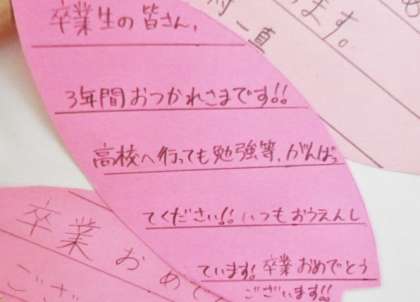 卒業生の皆さん、
3年間おつかれさまです!!
高校へ行っても勉強等、がんばっ
てください!!いつもおうえんし
ています!卒業おめでとう
ございます!!
ます。
一直
卒業おめで
ござ